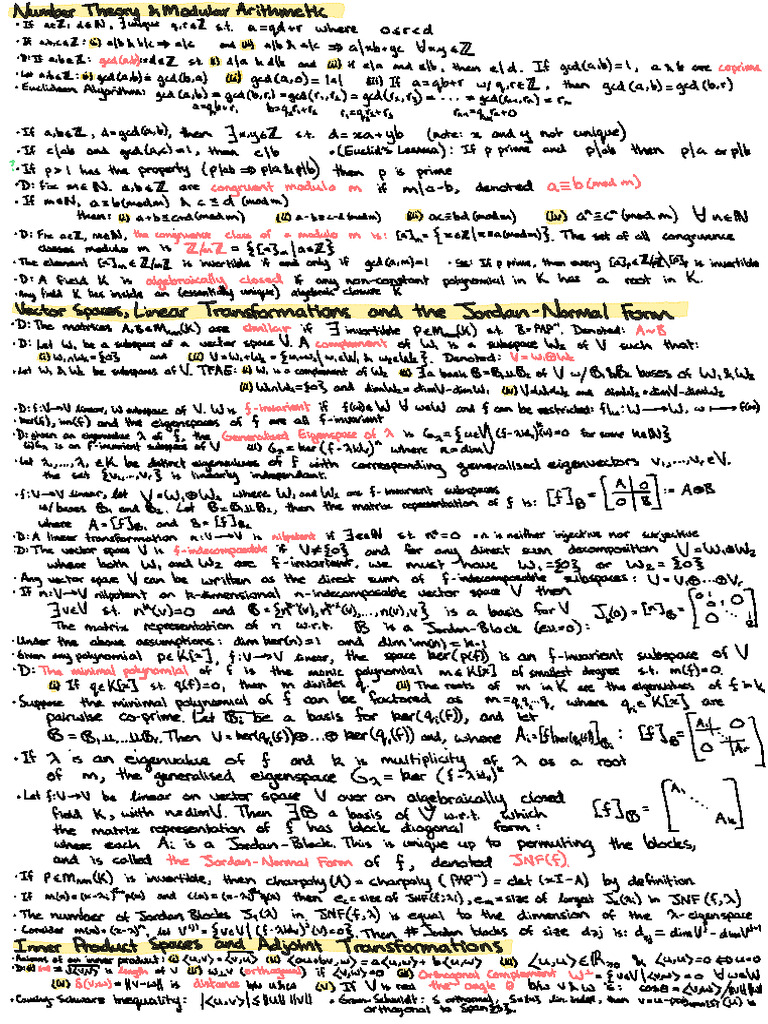 Number Theory & Modular Arithmetic
• If a∈ℤ, d∈ℕ, ∃ unique q,r∈ℤ s.t. a=qd+r where 0≤r<d
• If a,b,c∈ℤ: (i) a|b & b|c ⇒ a|c and (ii) a|b & a|c ⇒ a|xb+yc ∀x,y∈ℤ
• D: If a,b∈ℤ: gcd(a,b):=d∈ℤ s.t. (i) d|a & d|b and (ii) if e|a and e|b, then e|d. If gcd(a,b)=1, a & b are coprime
• Let a,b∈ℤ: (i) gcd(a,b)=gcd(b,a) (ii) gcd(a,0)=|a| (iii) If a=qb+r w/ q,r∈ℤ, then gcd(a,b)=gcd(b,r)
• Euclidean Algorithm: gcd(a,b)=gcd(b,r₁)=gcd(r₁,r₂)=gcd(r₂,r₃)=....=gcd(rₙ₋₁,rₙ)=rₙ
a=q₁b+r₁ b=q₂r₁+r₂ r₁=q₃r₂+r₃
• If a,b∈ℤ, d=gcd(a,b), then ∃x,y∈ℤ s.t. d=xa+yb (note: x and y not unique)
• If c|ab and gcd(a,c)=1, then c|b • (Euclid's Lemma): If p prime and p|ab then p|a or p|b
? • If p>1 has the property (p|ab ⇒ p|a & p|b) then p is prime
• D: Fix m∈ℕ. a,b∈ℤ are congruent modulo m if m|a-b, denoted a≡b(mod m)
• If m∈ℕ, a≡b(mod m) & c≡d (mod m)
then: (i) a+b≡c+d(mod m) (ii) a-b≡c-d(mod m) (iii) ac≡bd(mod m) (iv) aⁿ≡cⁿ(mod m) ∀ n∈ℕ
• D: Fix a∈ℤ, m∈ℕ, the congruence class of a modulo m is: [a]ₘ={x∈ℤ|x≡a(mod m)}. The set of all congruence
classes modulo m is ℤ/mℤ = {[a]ₘ|a∈ℤ}
• The element [a]ₘ∈ℤ/mℤ is invertible if and only if gcd(a,m)=1 • So: If p prime, then every [a]ₚ∈ℤ/pℤ\[0]ₚ is invertible
• D: A field K is algebraically closed if any non-constant polynomial in K has a root in K.
• Any field K has inside an (essentially unique) algebraic closure K
Vector Spaces, Linear Transformations and the Jordan-Normal Form
• D: The matrices A,B∈Mₙₓₙ(K) are similar if ∃ invertible P∈Mₙₓₙ(K) s.t. B=PAP⁻¹. Denoted: A~B
• D: Let W₁ be a subspace of a vector space V. A complement of W₁ is a subspace W₂ of V such that:
(i) W₁∩W₂={0} and (ii) V=W₁+W₂={w₁+w₂|w₁∈W₁ & w₂∈W₂}. Denoted: V=W₁⊕W₂
• Let W₁ & W₂ be subspaces of V. TFAE: (i) W₁ is a complement of W₂ (ii) ∃ a basis B=B₁∪B₂ of V w/ B₁ & B₂ bases of W₁ & W₂
(iii) W₁∩W₂={0} and dimW₂=dimV-dimW₁ (iv) V=W₁+W₂ and dimW₂=dimV-dimW₁
• D: f:V→V linear, W subspace of V. W is f-invariant if f(w)∈W ∀ w∈W and f can be restricted: f|w: W→W, w↦f(w)
• ker(f), im(f) and the eigenspaces of f are all f-invariant
• D: given an eigenvalue λ of f, the Generalised Eigenspace of λ is G_λ={v∈V|(f-λid_V)ᵏ(v)=0 for some k∈ℕ}
(i) G_λ is an f-invariant subspace of V (ii) G_λ=ker(f-λid_V)ⁿ where n=dimV
• Let λ₁,...,λᵣ∈K be distinct eigenvalues of f with corresponding generalised eigenvectors v₁,...,vᵣ∈V.
the set {v₁,...,vᵣ} is linearly independent.
• f:V→V linear, let V=W₁⊕W₂ where W₁ and W₂ are f-invariant subspaces
w/ bases B₁ and B₂. Let B=B₁∪B₂, then the matrix representation of f is: [f]_B=[A 0 / 0 B] =: A⊕B
where A=[f]_B₁ and B=[f]_B₂
• D: A linear transformation n:V→V is nilpotent if ∃ e∈ℕ s.t. nᵉ=0 • n is neither injective nor surjective
• D: The vector space V is f-indecomposable if V≠{0} and for any direct sum decomposition V=W₁⊕W₂
where both W₁ and W₂ are f-invariant, we must have W₁={0} or W₂={0}
• Any vector space V can be written as the direct sum of f-indecomposable subspaces: V=V₁⊕...⊕Vᵣ
• If n:V→V nilpotent on k-dimensional n-indecomposable vector space V then
∃v∈V s.t. nᵏ(v)=0 and B={nᵏ⁻¹(v),nᵏ⁻²(v),...,n(v),v} is a basis for V
The matrix representation of n w.r.t. B is a Jordan-Block (ev=0): Jₖ(0)=[n]_B=
• Under the above assumptions: dim ker(n)=1 and dim im(n)=k-1
• Given any polynomial p∈K[x], f:V→V linear, the space ker(p(f)) is an f-invariant subspace of V
• D: The minimal polynomial of f is the monic polynomial m∈K[x] of smallest degree s.t. m(f)=0.
(i) If q∈K[x] s.t. q(f)=0, then m divides q. (ii) The roots of m in K are the eigenvalues of f in K
• Suppose the minimal polynomial of f can be factored as m=q₁q₂...qᵣ, where qᵢ∈K[x] are
pairwise co-prime. Let Bᵢ be a basis for ker(qᵢ(f)), and let
B=B₁∪...∪Bᵣ. Then V=ker(q₁(f))⊕...⊕ker(qᵣ(f)) and, where Aᵢ=[f|ker(qᵢ(f))]_Bᵢ: [f]_B=[A₁ 0 / 0 Aᵣ]
• If λ is an eigenvalue of f and k is multiplicity of λ as a root
of m, the generalised eigenspace G_λ=ker(f-λid_V)ᵏ
• Let f:V→V be linear on vector space V over an algebraically closed
field K, with n=dimV. Then ∃B a basis of V w.r.t. which
the matrix representation of f has block diagonal form: [f]_B=[A₁ ... Aₖ]
where each Aᵢ is a Jordan-Block. This is unique up to permuting the blocks,
and is called the Jordan-Normal Form of f, denoted JNF(f).
• If P∈Mₙₓₙ(K) is invertible, then charpoly(A)=charpoly(PAP⁻¹)=det(xI-A) by definition
• The number of Jordan Blocks Jᵢ(λ) in JNF(f,λ) is equal to the dimension of the λ-eigenspace
Inner Product Spaces and Adjoint Transformations
• Axioms of an inner product: (i) ⟨u,v⟩=⟨v,u⟩ (ii) ⟨au+bv,w⟩=a⟨u,w⟩+b⟨v,w⟩ (iii) ⟨u,u⟩∈ℝ≥0 & ⟨u,u⟩=0⇔u=0
is length of v orthogonal if ⟨v,w⟩=0 Orthogonal Complement W⊥={v∈V|⟨v,w⟩=0 ∀w∈W}
(iv) δ(v,w)=||v-w|| is distance b/w v & w (v) If V is real the angle θ b/w v & w is: cosθ=⟨v,w⟩/||v||||w||
• Cauchy-Schwarz Inequality: |⟨u,v⟩|≤||u||||v||
orthogonal to Span{S}.